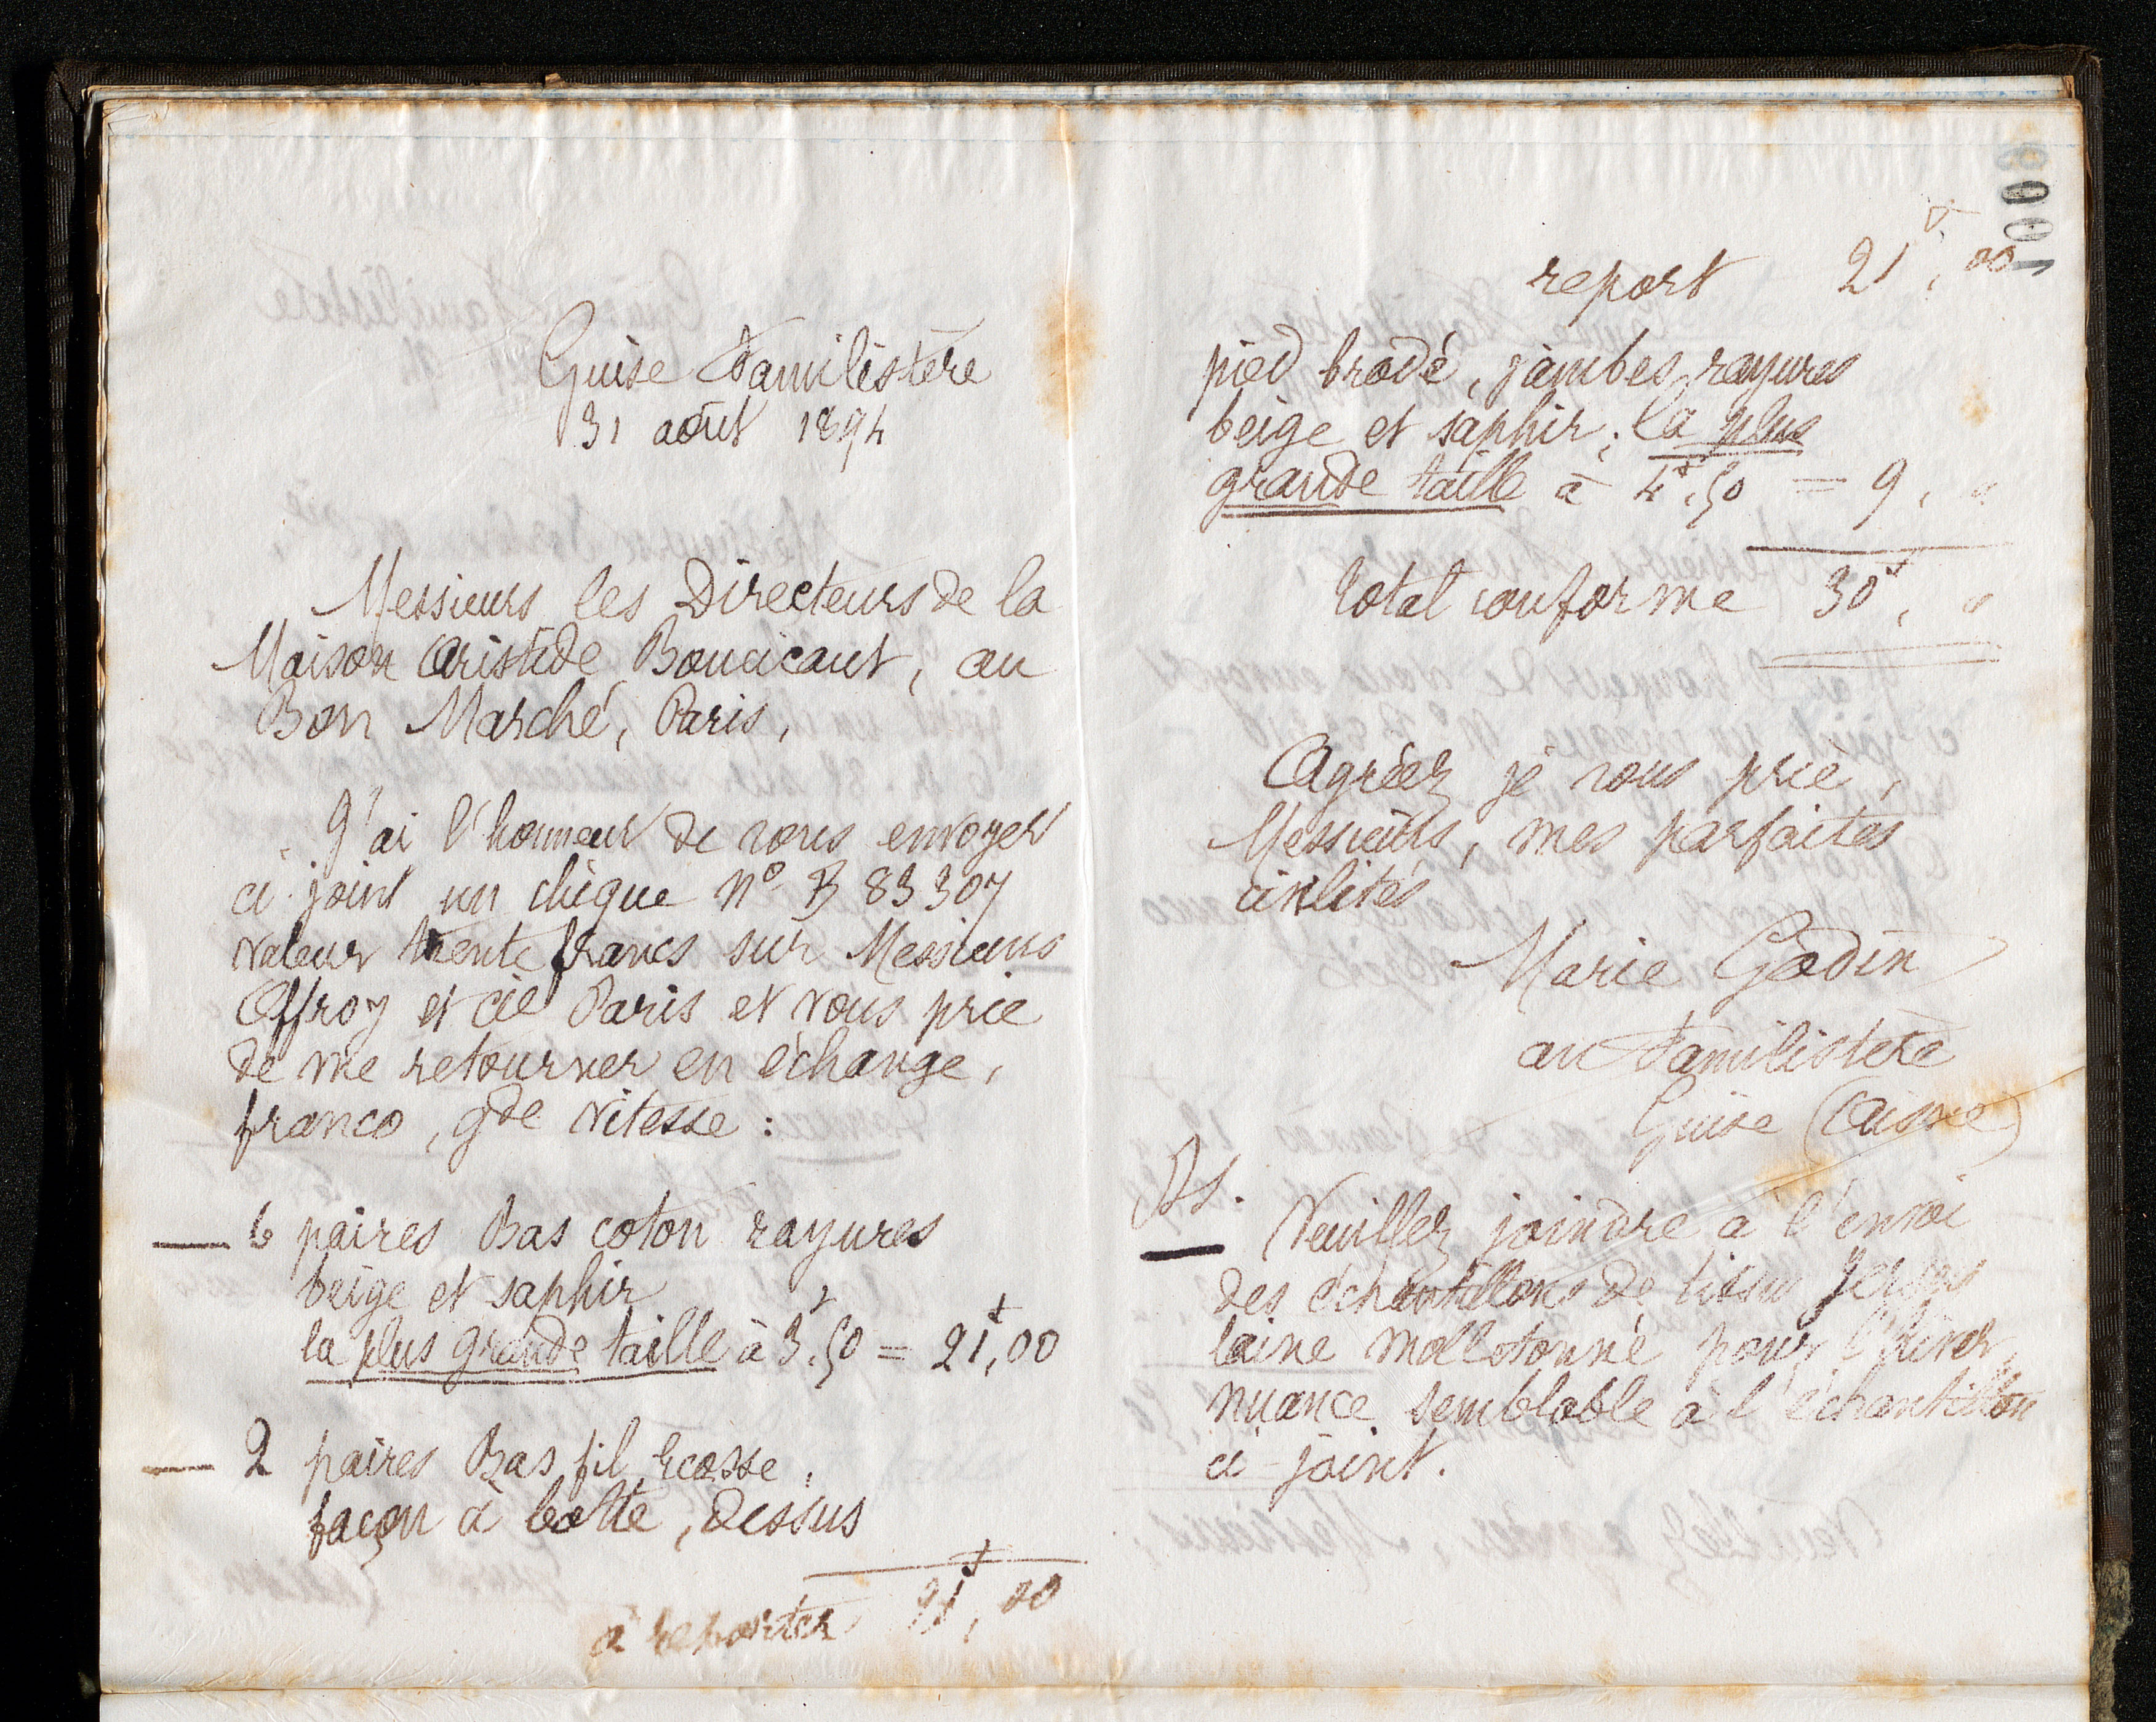 Guise Familistère
31 août 1894
Messieurs les Directeurs de la
Maison Aristide Boucicaut, au
Bon Marché, Paris,
J'ai l'honneur de vous envoyer
ci-joint un chèque N° B 83307
valeur trente francs sur Messieurs
Offroy et Cie Paris et vous prie
de me retourner en échange,
franco, gde vitesse :
— 6 paires Bas coton rayures
beige et saphir
la plus grande taille à 3f,50 = 21f,00
— 2 paires Bas fil Ecosse,
façon à botte, dessus
à reporter 21f,00
0008
report 21f,00
pied brodé, jambes rayures
beige et saphir; la plus
grande taille à 4f,50 = 9, "
Total conforme 30f, "
Agréez, je vous prie,
Messieurs, mes parfaites
civilités
Marie Godin
au Familistère
Guise (Aisne)
Ps.
— Veuillez joindre à l'envoi
des échantillons de tissu Jersey
laine molletonné pour l'hiver,
nuance semblable à l'échantillon
ci-joint.